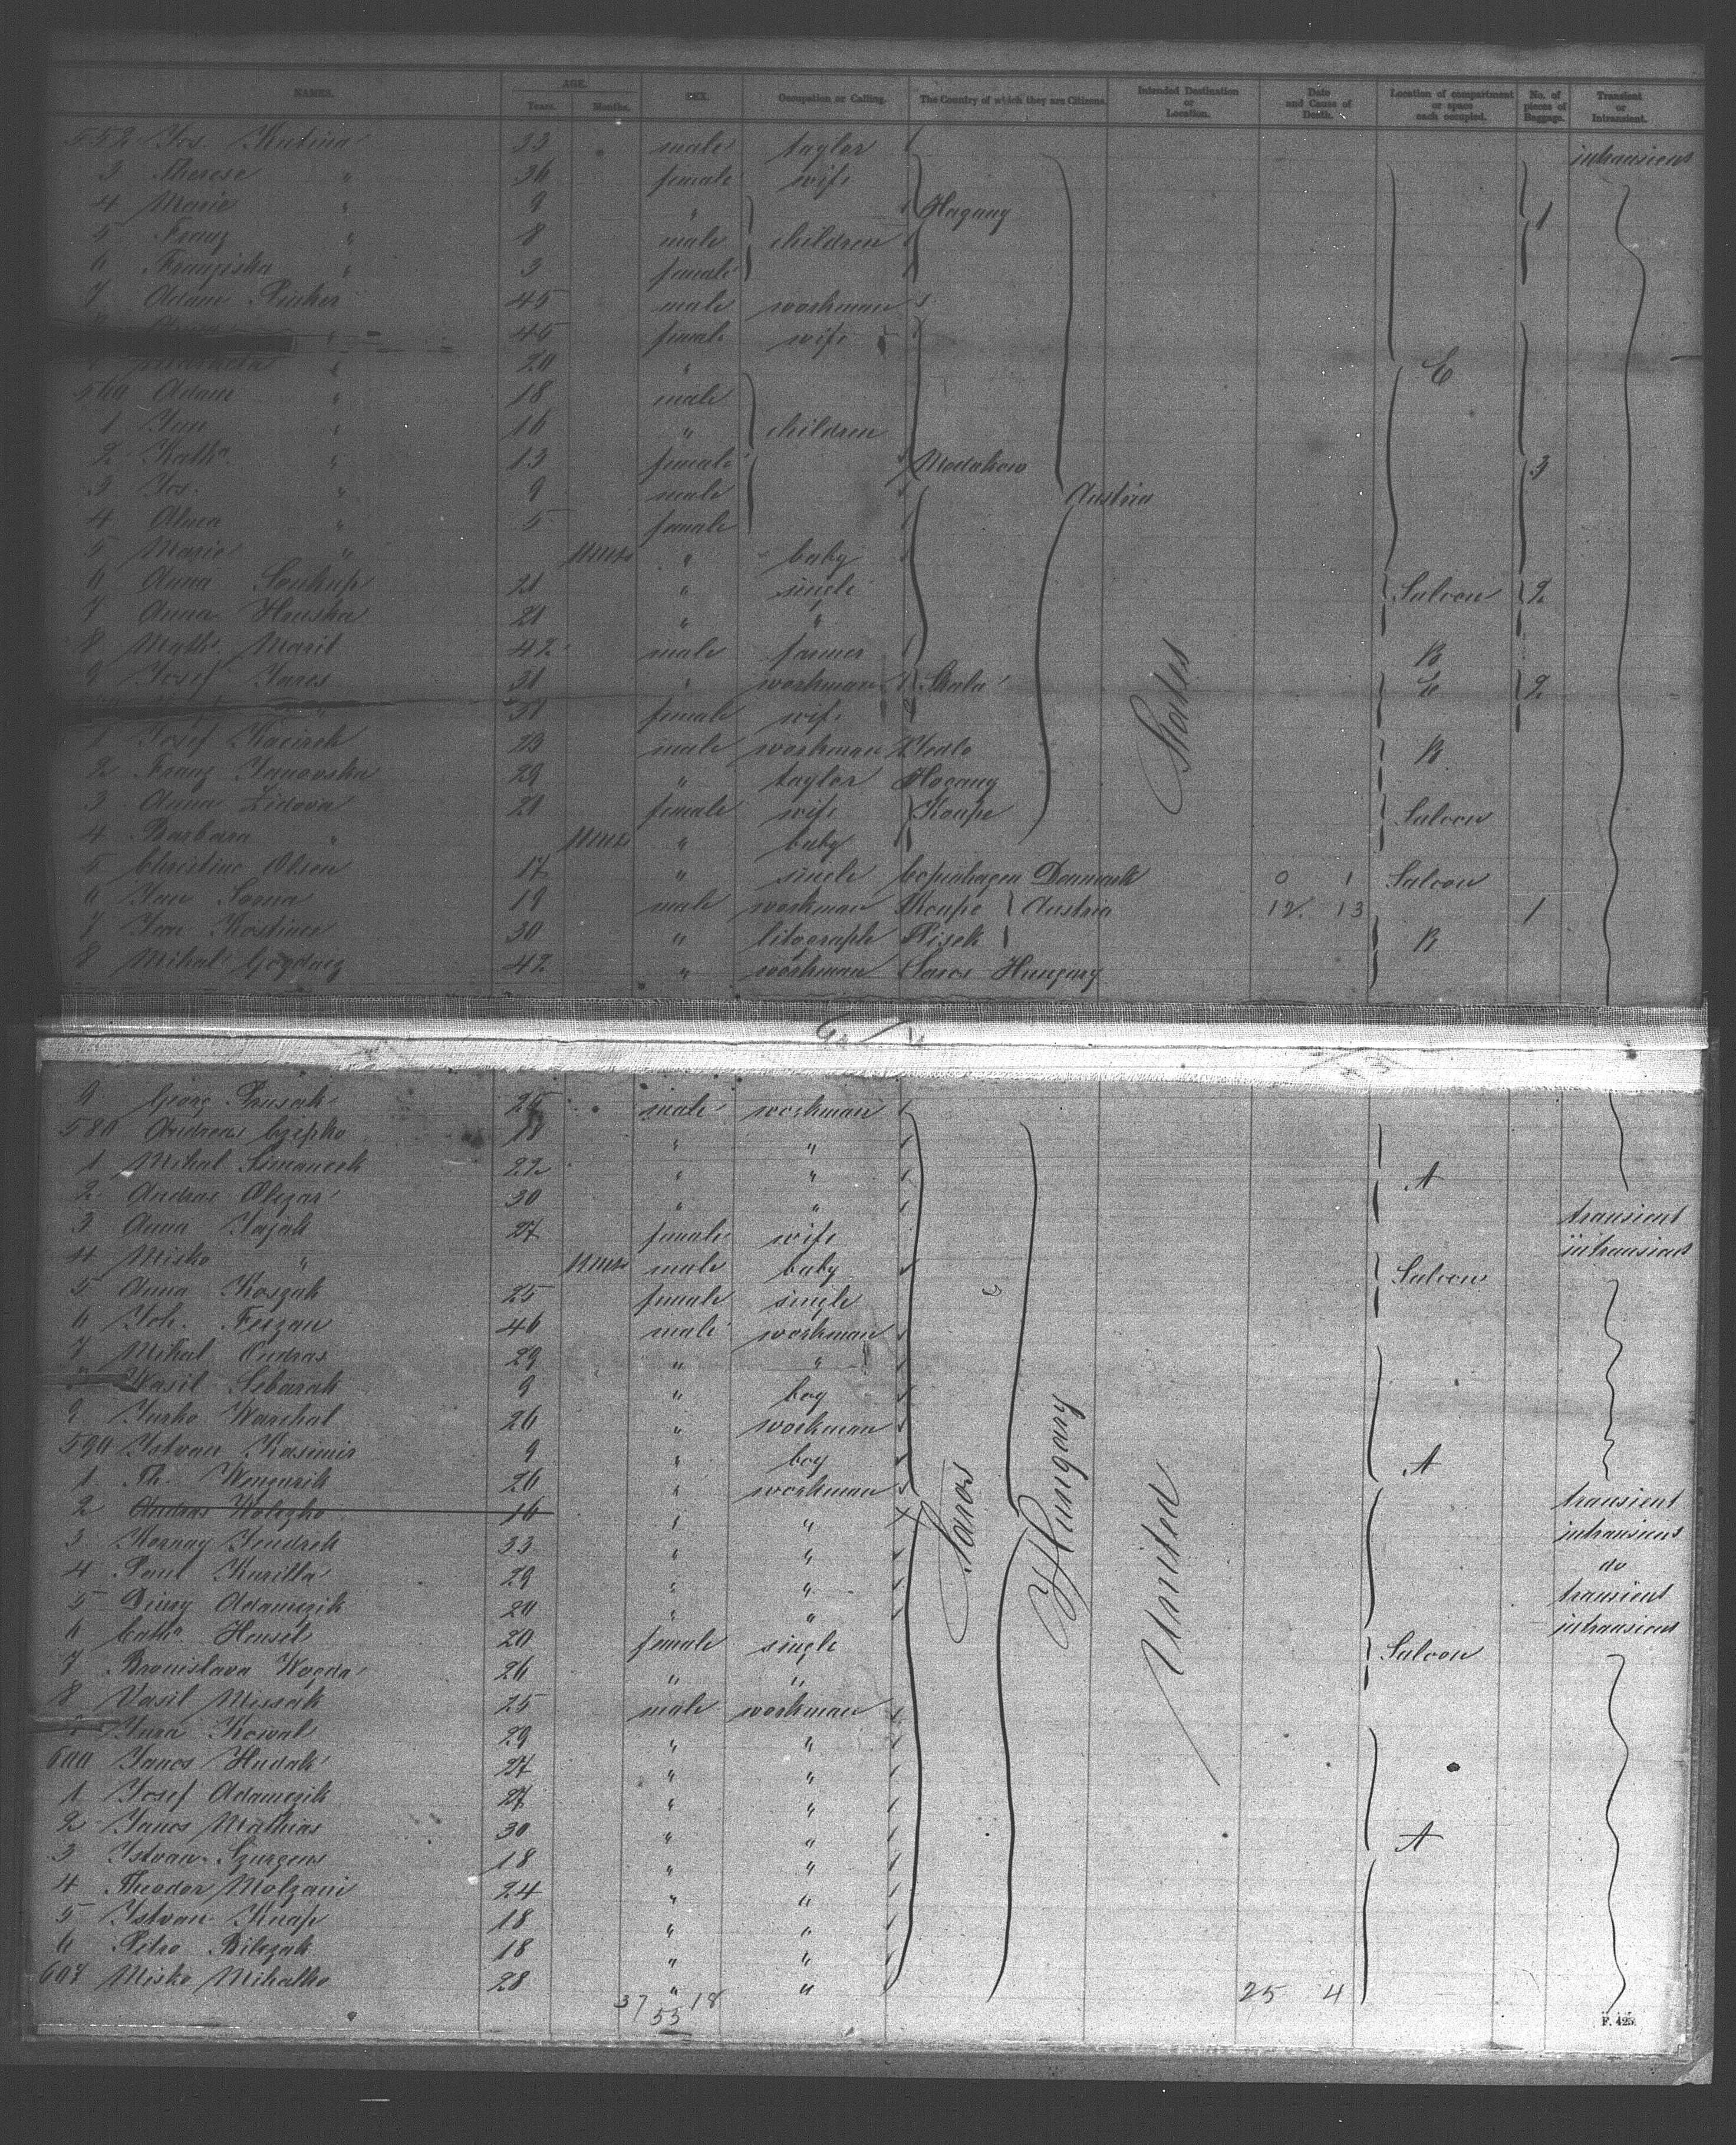 NAMES. AGE. Years. Months. SEX. Occupation or Calling. The Country of which they are Citizens. Intended Destination or Location. Date and Cause of Death. Location of compartment or space each occupied. No. of pieces of Baggage. Transient or Intransient.
552 Jos. Kutina 33 male taylor intransient
3 Therese " 36 female wife
4 Marie " 9 " Hagang 1
5 Franz " 8 male children
6 Franziska " 3 female
7 Adam Pinker 45 male workman
" 45 female wife
" 20 " E
560 Adam " 18 male
1 Jan " 16 " children
2 Katha " 13 female Modakow 3
3 Jos. " 9 male Austria
4 Anna " 5 female
5 Marie " 11 mos " baby
6 Anna Soukup 21 " single Saloon 2
7 Anna Hruska 21 " "
8 Maths. Marit 42 male farmer B
9 Josef Jares 31 " workman Skala E 2
" 31 female wife
1 Josef Kacirek 23 male workman Zledlo B
2 Franz Janovska 29 " taylor Hogang
3 Anna Zidova 21 female wife Koupe Saloon
4 Barbara " 11 mos " baby
5 Christine Olsen 17 " single Copenhagen Denmark 0 1 Saloon
6 Jan Sorna 19 male workman Koupe Austria 12 13 1
7 Jan Kostiner 30 " litograph Pisek B
8 Mihal Gozdney 42 " workman Saros Hungary
States
9 Georg Prusak 25 male workman
580 Andreas Czepko 18 " "
1 Mihal Simancek 22 " " A
2 Andras Olezar 30 " "
3 Anna Jajak 27 female wife transient
4 Misko " 11 mos male baby Saloon intransient
5 Anna Koszak 25 female single
6 Joh. Feizan 46 male workman
7 Mihal Andras 29 " "
Wasil Sebarak 9 " boy
9 Jurko Warchal 26 " workman
590 Istvan Kasimir 9 " boy A
1 Th. Wenzurik 26 " workman
2 Andras Wolczko 16 " " transient
3 Kornay Jendrek 33 " " intransient
4 Paul Kurilla 29 " " do
5 Diury Adamczik 20 " " transient
6 Catha Hensel 20 female single Saloon intransient
7 Bronislava Wagda 26 " "
8 Vasil Missak 25 male workman
Jura Kowal 29 " "
600 Janos Hudak 27 " "
1 Josef Adamczik 27 " "
2 Janos Mathias 30 " " A
3 Istvan Szurgens 18 " "
4 Theodor Molzani 24 " "
5 Istvan Knap 18 " "
6 Petro Bilczak 18 " "
607 Misko Mihalko 28 " "
Saros
Hungary
United
37 18 25 4
55
F. 425.